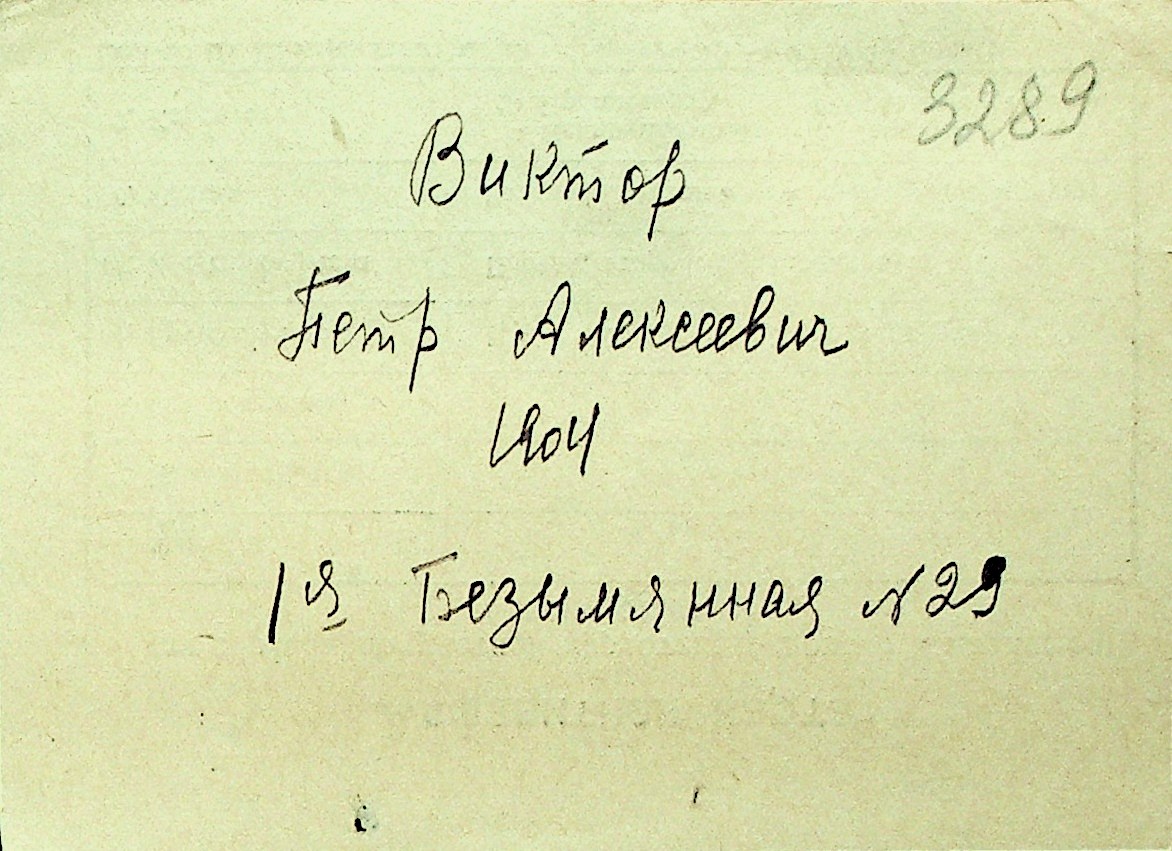 3289
Виктор
Петр Алексеевич
1904
1я Безымянная №29